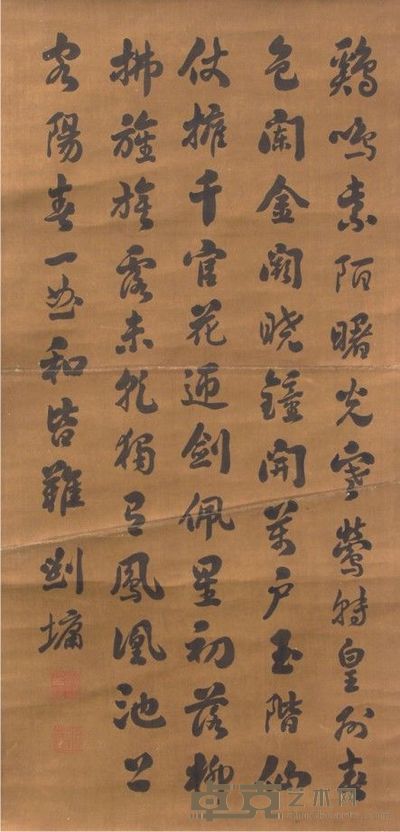 鷄鳴紫陌曙光寒鶯囀皇州春
色闌金闕曉鐘開萬户玉階仙
仗擁千官花迎劍佩星初落柳
拂旌旂露未乾獨有鳳凰池上
客陽春一曲和皆難 劉墉
卓克艺术网